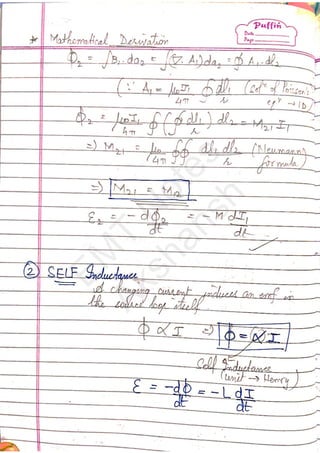 Puffin
Date
Page
* Mathematical Derivation
Φ₂ = ∫B₁.da₂ = ∫(∇×A₁)da₂ = ∮A₁.dl₂
(∵ A₁ = μ₀I₁/4π ∮ dl₁/r (Solⁿ of Poisson's eqⁿ → 1D)
Φ₂ = μ₀I₁/4π ∮(∮ dl₁/r) dl₂ = M₂₁ I₁
⇒ M₂₁ = μ₀/4π ∮∮ dl₁ dl₂/r (Neumann formula)
⇒ M₂₁ = M₁₂
ε₂ = -dΦ₂/dt = -M dI₁/dt
② SELF Inductance
A changing current induces an emf in
the source loop itself
ϕ ∝ I ⇒ ϕ = L I
Self Inductance
(unit → Henry)
ε = -dϕ/dt = -L dI/dt